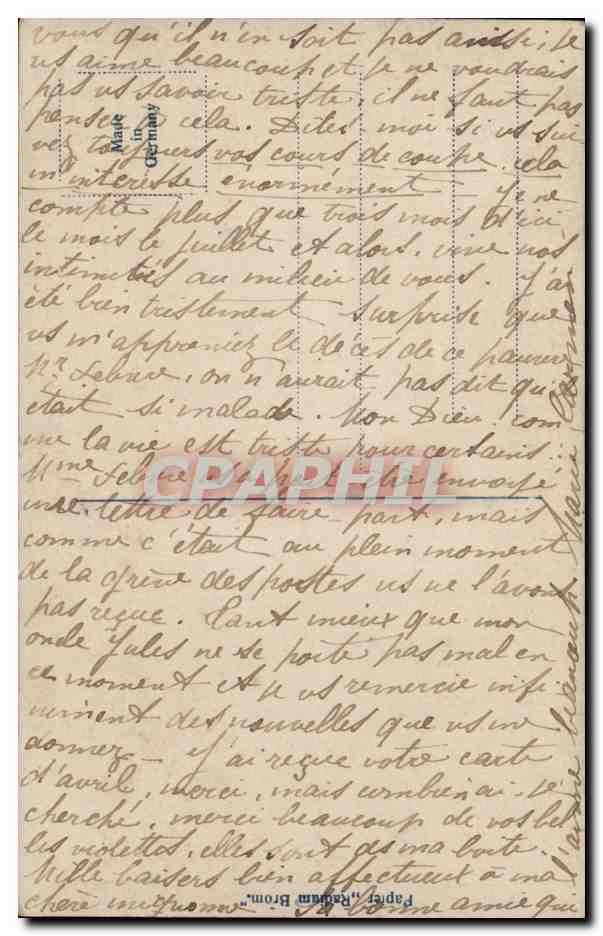 vous qu'il n'en soit pas aussi, je
vs aime beaucoup et je ne voudrais
pas vs savoir triste, il ne faut pas
penser à cela. Dites moi si vs sui
vez toujours vos cours de coupe cela
m'intéresse énormément je ne
compte plus que trois mois d'ici
le mois de juillet et alors, vive nos
intimités au milieu de vous. J'ai
été bien tristement surprise que
vs m'appreniez le décès de ce pauvre
Mr Lebrue, on n'aurait pas dit qu'il
était si malade. Mon Dieu com
me la vie est triste pour certains:
Mme Lebrue a peut être envoyé
une lettre de faire-part, mais
comme c'était au plein moment
de la grève des postes vs ne l'avons
pas reçue. Tant mieux que mon
oncle Jules ne se porte pas mal en
ce moment et je vs remercie infi
niment des nouvelles que vs me
donnez - J'ai reçue votre carte
d'avril, merci, mais combien ai-je
cherché, merci beaucoup de vos bel
les violettes, elles sont ds ma boite
Mille baisers bien affectueux à ma
chère mignonne. Sa bonne amie qui
l'aime beaucoup
Made
in
Germany
CPARHIL
Papier „Radium Brom."